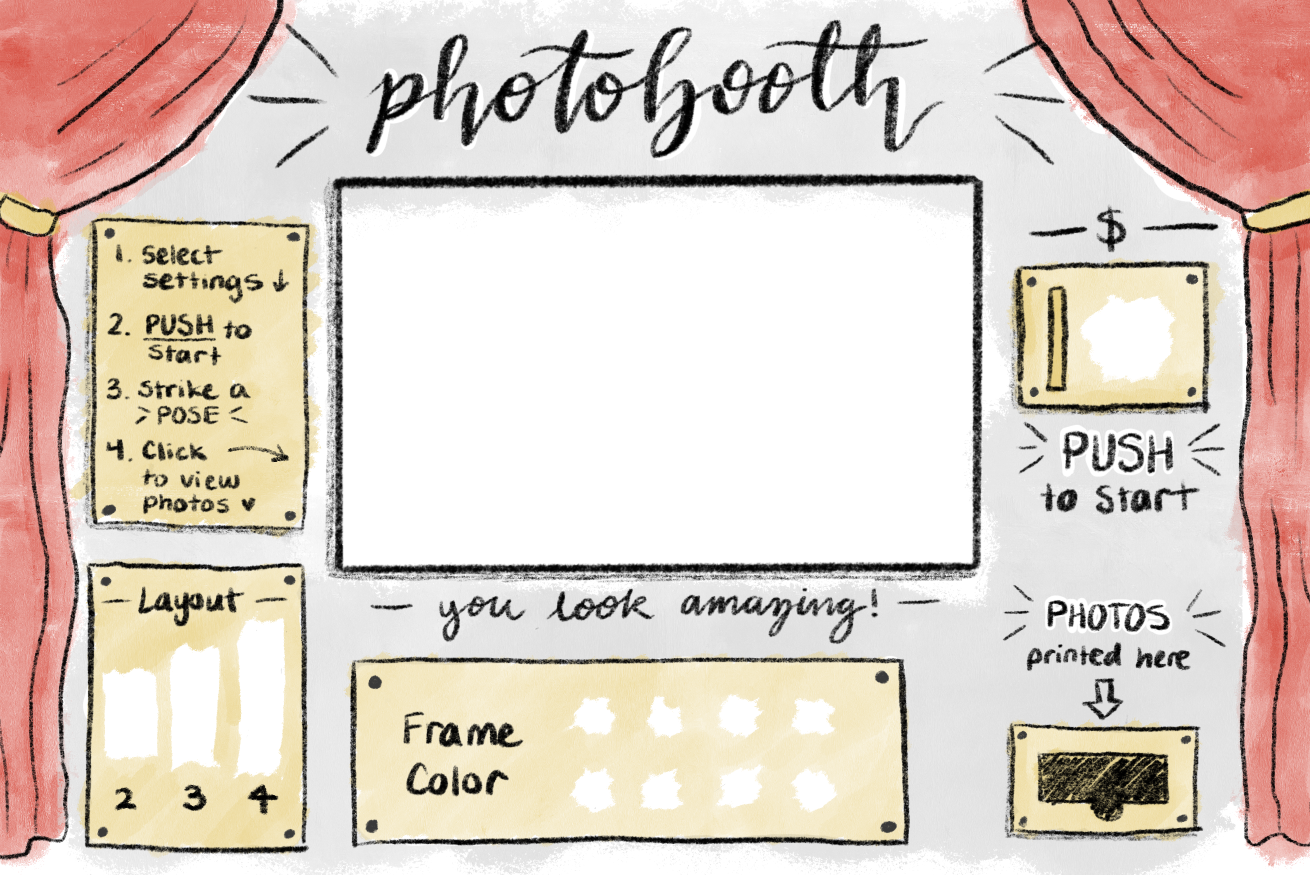 photobooth
1. Select
settings ↓
2. PUSH to
Start
3. Strike a
> POSE <
4. Click →
to view
photos ♥
Layout
2 3 4
you look amazing!
Frame
Color
$
PUSH
to Start
PHOTOS
printed here